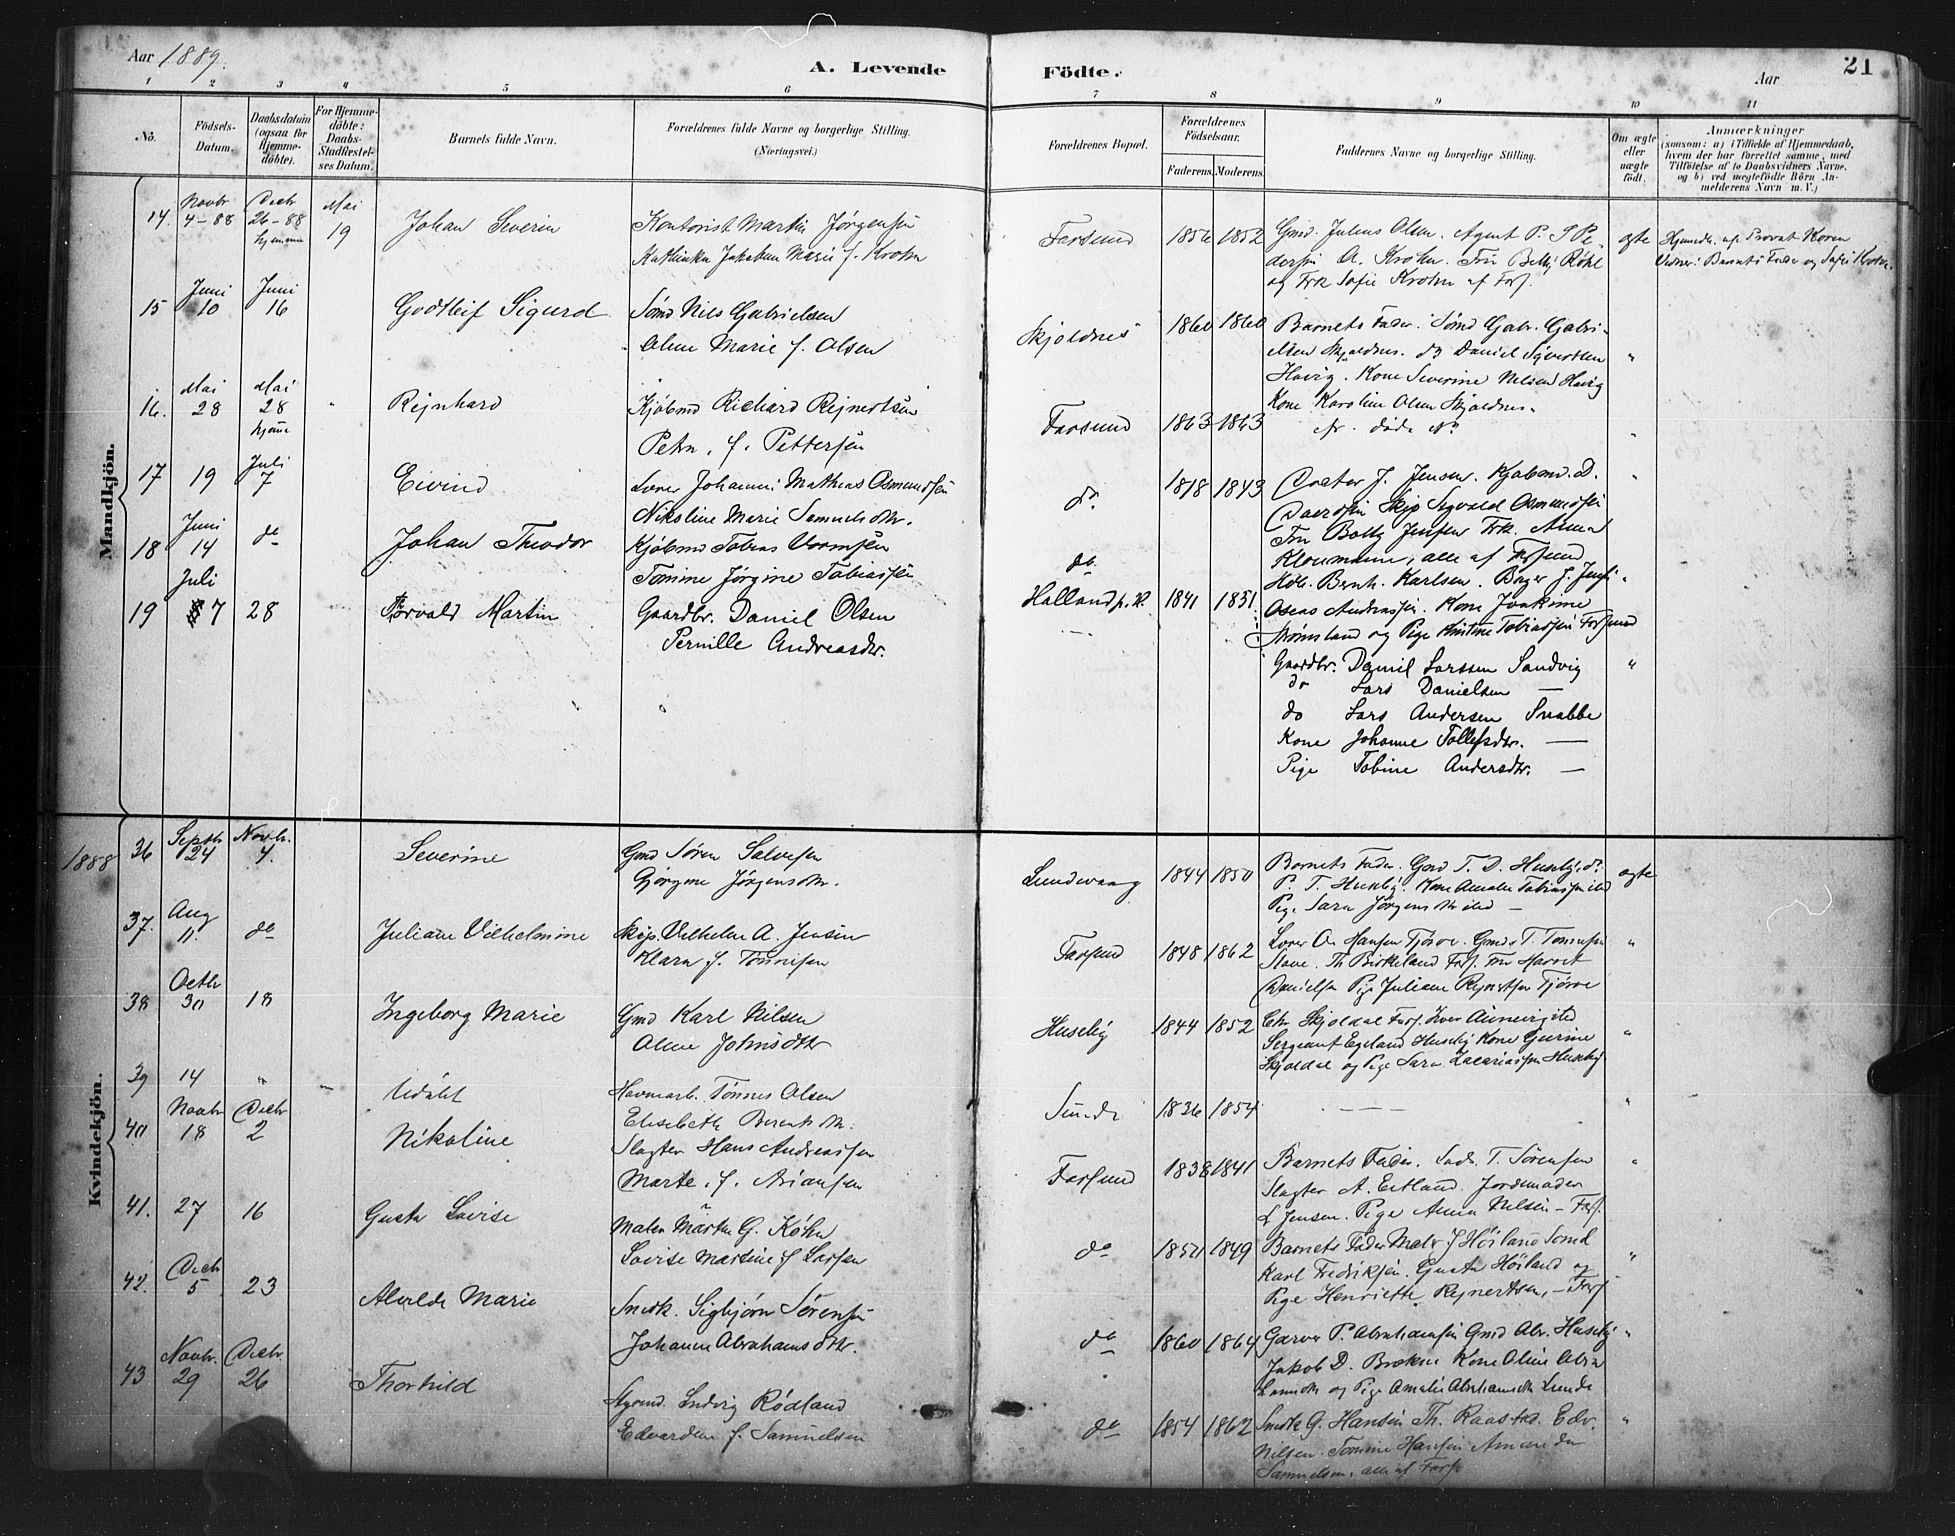 Aar 1889.
A. Levende
Födte.
Aar
21
1 2 3 4 5 6 7 8 9 10 11
No.
Födsels-Datum.
Daabsdatum (ogsaa for Hjemme-döbte).
For Hjemme-döbte: Daabs-Stadfæstel-ses Datum.
Barnets fulde Navn.
Forældrenes fulde Navne og borgerlige Stilling.
(Næringsvei.)
Forældrenes Bopæl.
Forældrenes Födselsaar.
Faderens. Moderens.
Faddernes Navne og borgerlige Stilling.
Om ægte eller uægte født.
Anmærkninger
(saasom: a) i Tilfælde af Hjemmedaab, hvem der har forrettet samme, med Tilföielse af to Daabsvidners Navne, og b) ved uægtefödte Börn An-melderens Navn m. V.)
Mandkjön.
14. Novbr 4-88 Decbr 26-88 hjemme Mai 19 Johan Severin
Kontorist Martin Jørgensen
Kathinka Jakobine Marie f. Krohn
Farsund 1856 1852
Gmd. Julius Olsen. Agent P. S Pe-
dersen A. Krohn. Fru Betty Røhl
og Frk Sofie Krohn af Fars.
ægte
Hjemdt. af Provst Koren
Vidner: Barnets Fader og Sofie Krohn.
15 Juni 10 Juni 16 Godtleif Sigurd
Sømd Nils Gabrielsen
Oline Marie f. Olsen
Skjoldnes 1860 1860
Barnets Fader. Sømd Gabr. Gabri-
elsen Skjoldnes. do Daniel Syvertsen
Havig. Kone Severine Nelsen Havig
Kone Karoline Olsen Skjoldnes.
"
16. Mai 28 Mai 28 hjeme Rejnhard
Kjøbmd Richard Rejnertsen
Petra, f. Pettersen
Farsund 1863 1863
"
17 19 Juli 7 Eivind
Lover Johannes Mathias Osmundsen
Nikoline Marie Samuelsdtr.
do. 1818 1843
Doctor J. Jensen. Kjøbmd. D.
Davidsen Skip Sigvald Osmundsen
Fru Betty Jensen Frk. Anna
Kloumann, alle af Farsund
"
18 Juni 14 do Johan Theodor
Kjøbmd Tobias Vormsen
Tomine Jørgine Tobiassen
do
Hdb. Bernh. Karlsen. Bager J. Jens.
Oseas Andreassen. Kone Joakime
Strømsland og Pige Kristine Tobiassen Farsund
19 Juli 7 28 Torvald Martin
Gaardbr. Daniel Olsen
Pernille Andreasdtr.
Halland p. V. 1841 1851
Gaardbr. Daniel Larssen Sandvig
do Lars Danielsen —
do Lars Andersen Snabbe
Kone Johanne Tollefsdtr. —
Pige Tobine Andersdtr. —
"
Kvindekjön.
1888
36 Septbr 24 Novbr. 4. Severine
Gmd Søren Salvesen
Gjørgine Jørgensdtr.
Lundevaag 1844 1850
Barnets Fader. Gmd T. D. Huseby, do
P. T. Huseby. Kone Amalie Tobiassen ibd
Pige Sara Jørgensdtr ibd —
ægte
37. Aug 11. do Juliane Vilhelmine
Skip. Vilhelm A. Jensen
Klara f. Tønnesen
Farsund 1848 1862
Lover A. Hansen Tjørve. Gmd T. Tønnesen
Stave. Th Birkeland Fars. Fru Harriet
Danielsen Pige Juliane Rejnertsen Tjørve
"
38 Octbr 30 18 Ingeborg Marie
Gmd Karl Nilsen
Oline Johnsdtr
Huseby 1844 1852
Chr Skjoldal Fars. Iver Ameirg ibd
Sergeant Egeland Huseby Kone Gurine
Skjoldal og Pige Sara Zacariassen Huseby
"
39 14 " Udøbt
Havnearb. Tønnes Olsen
Elisabeth Berentsdtr.
Sunde 1836 1854
"
40 Novbr 18 Decbr 2 Nikoline
Slagter Hans Andreassen
Marte, f. Ariansen
Farsund 1838 1841
Barnets Fader. Sads. T. Sørensen
Slagter A. Eitland. Jordemoder
L Jensen. Pige Anna Nilsen — Fars.
"
41. 27 16 Gusta Lovise
Maler Martin G. Køhn
Lovise Martine f Larsen
do 1850 1849
Barnets Fader Maler J Höiland Sømd
Karl Fredriksen. Gusta Höiland og
Pige Henriette Rejnertsen, — Fars.
"
42. Decbr 5 23 Alvilde Marie
Snedk. Sigbjørn Sørensen
Johanne Abrahamsdtr.
do 1860 1864
Garver P. Abrahamsen Gmd Abr. Huseby
Jakob D. Brekne Kone Oline Abra
hamsdtr og Pige Amalie Abrahamsdtr Lunde
"
43 Novbr. 29 Decbr. 26 Thorhild
Styrmd. Ludvig Rødland
Edvardine f. Samuelsen
do 1854 1862
Snedk G. Hansen Th. Raastad. Edv.
Nilsen. Tomine Hansen Amanda
Samuelsen. alle af Fars.
"